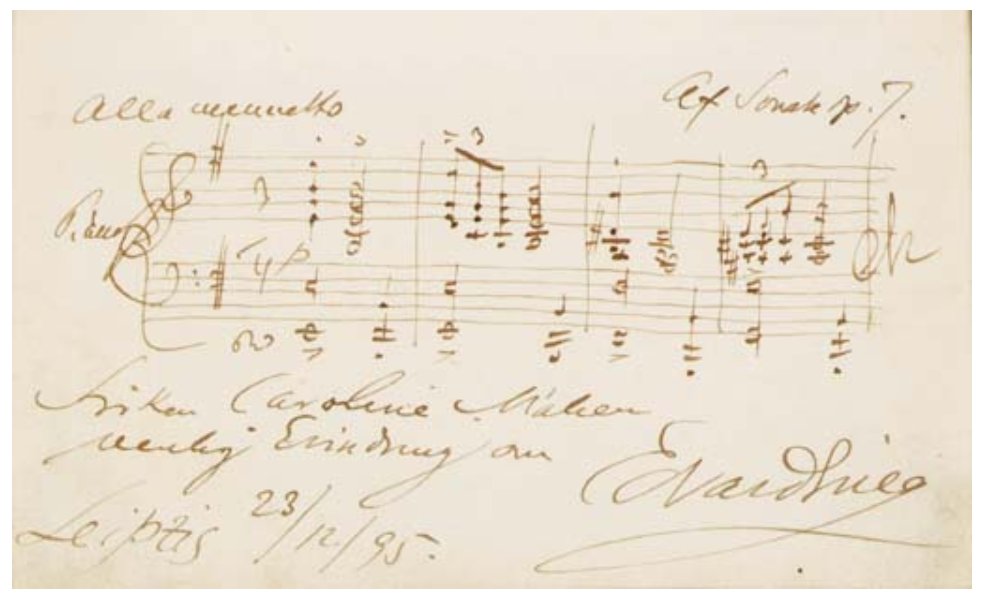 Alla menuetto
Af Sonate op. 7.
Piano
3
p
3
3
Frøken Caroline
venlig Erindring om
Edvard Grieg
Leipzig 23/12/95.